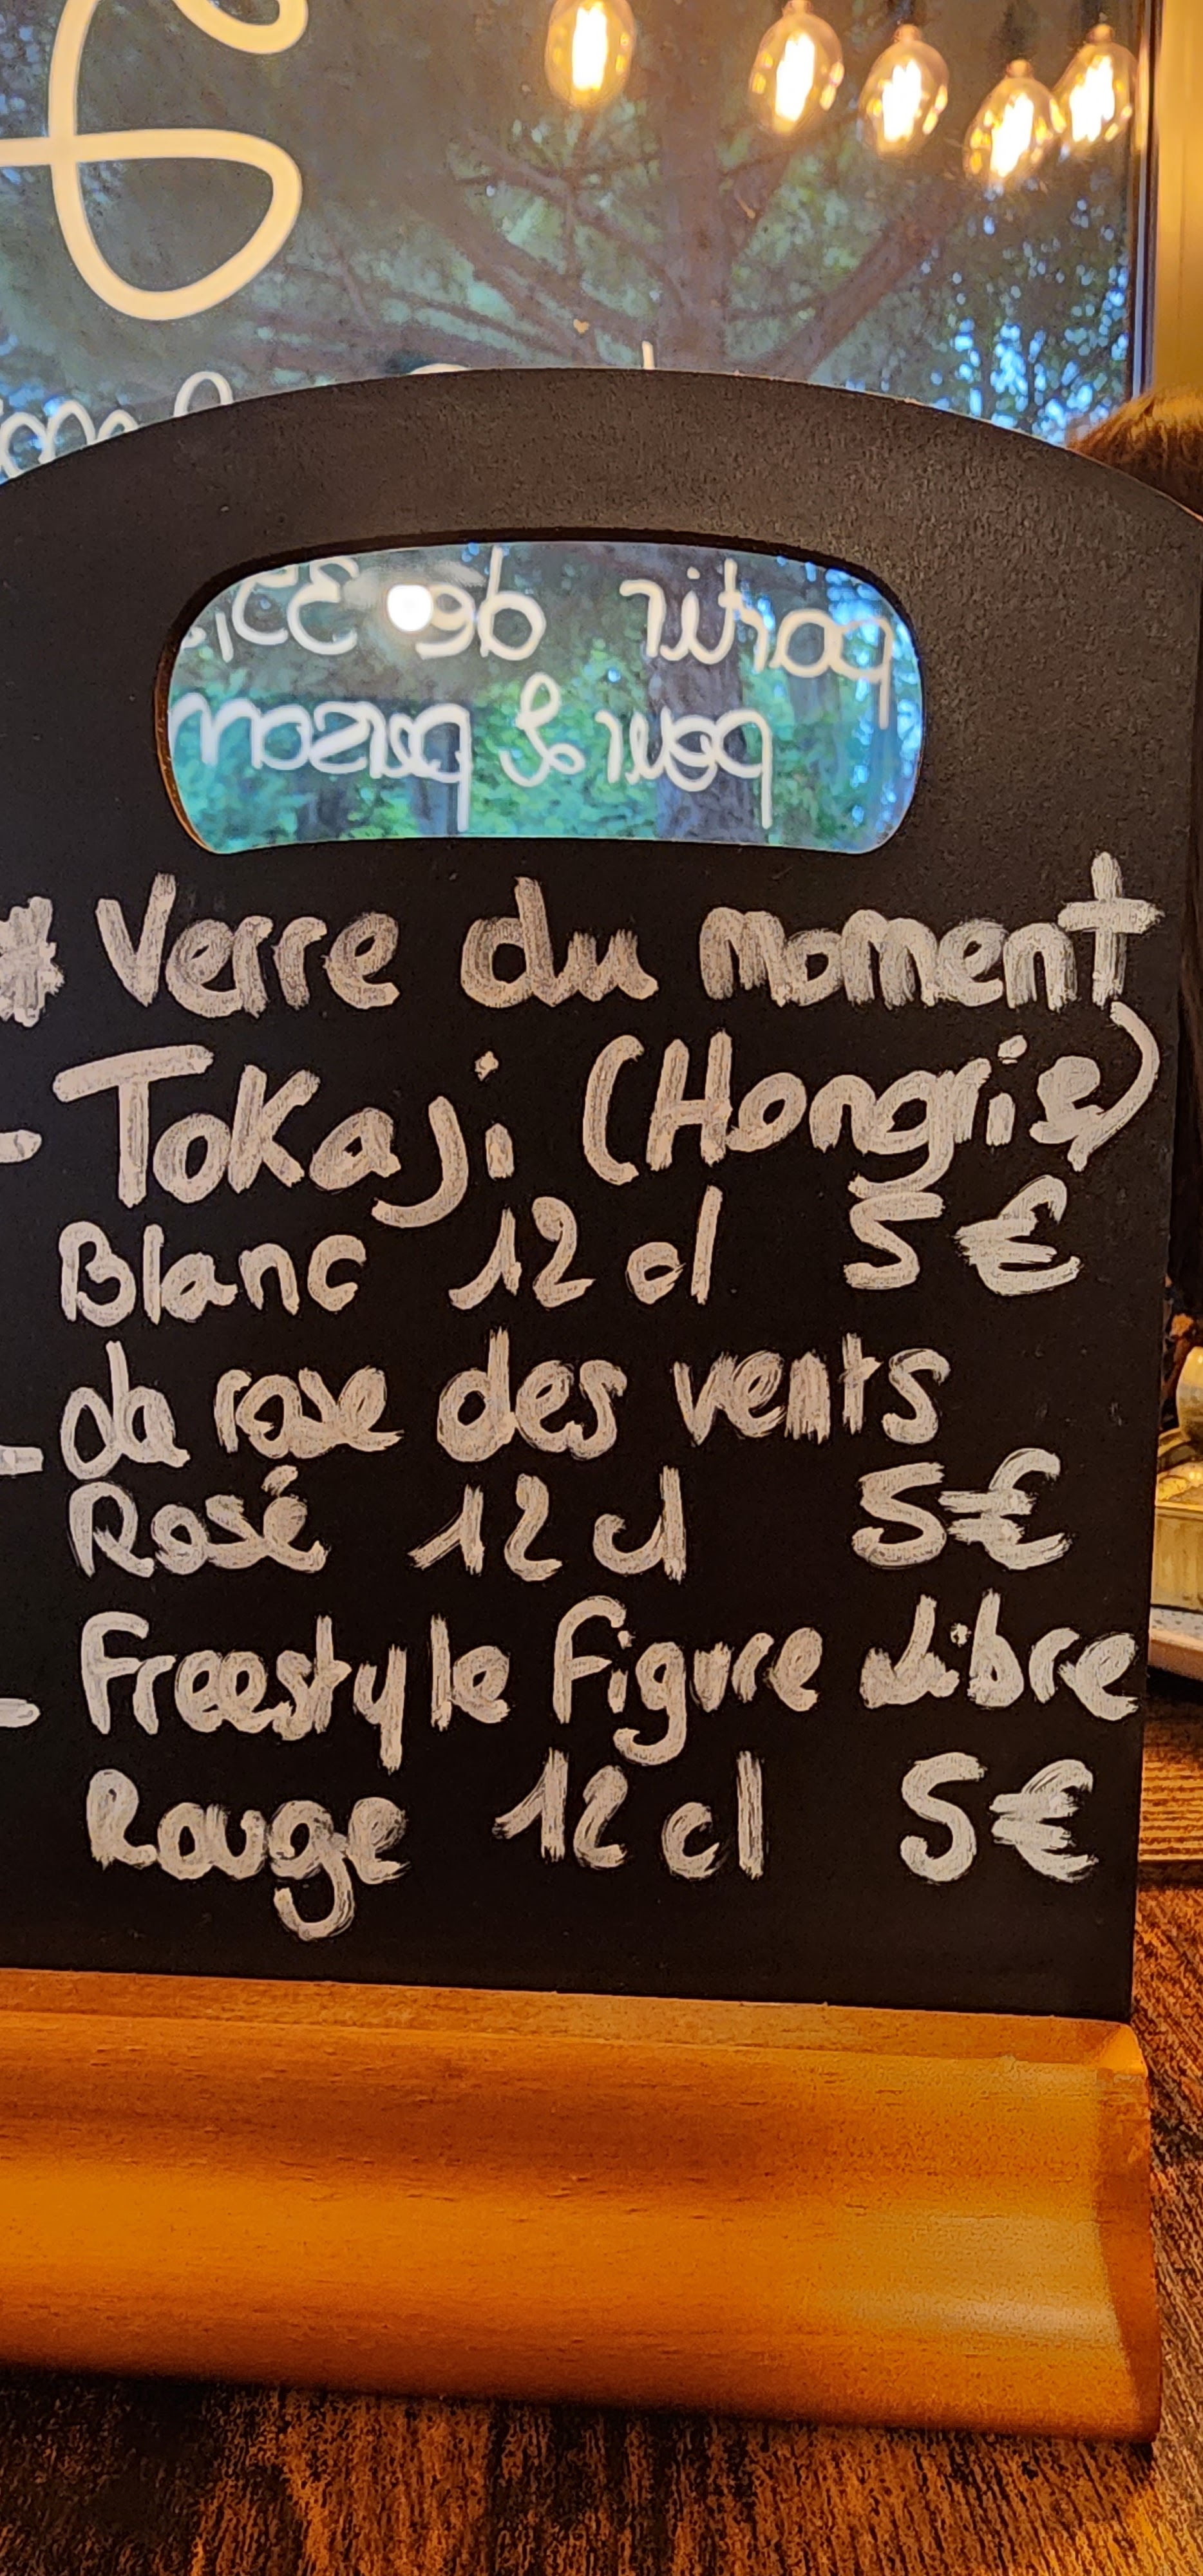 partir de
pour & person
* Verre du moment
- Tokaji (Hongrie)
Blanc 12 cl 5 €
- La rose des vents
Rosé 12 cl 5 €
- Freestyle Figure Libre
Rouge 12 cl 5 €